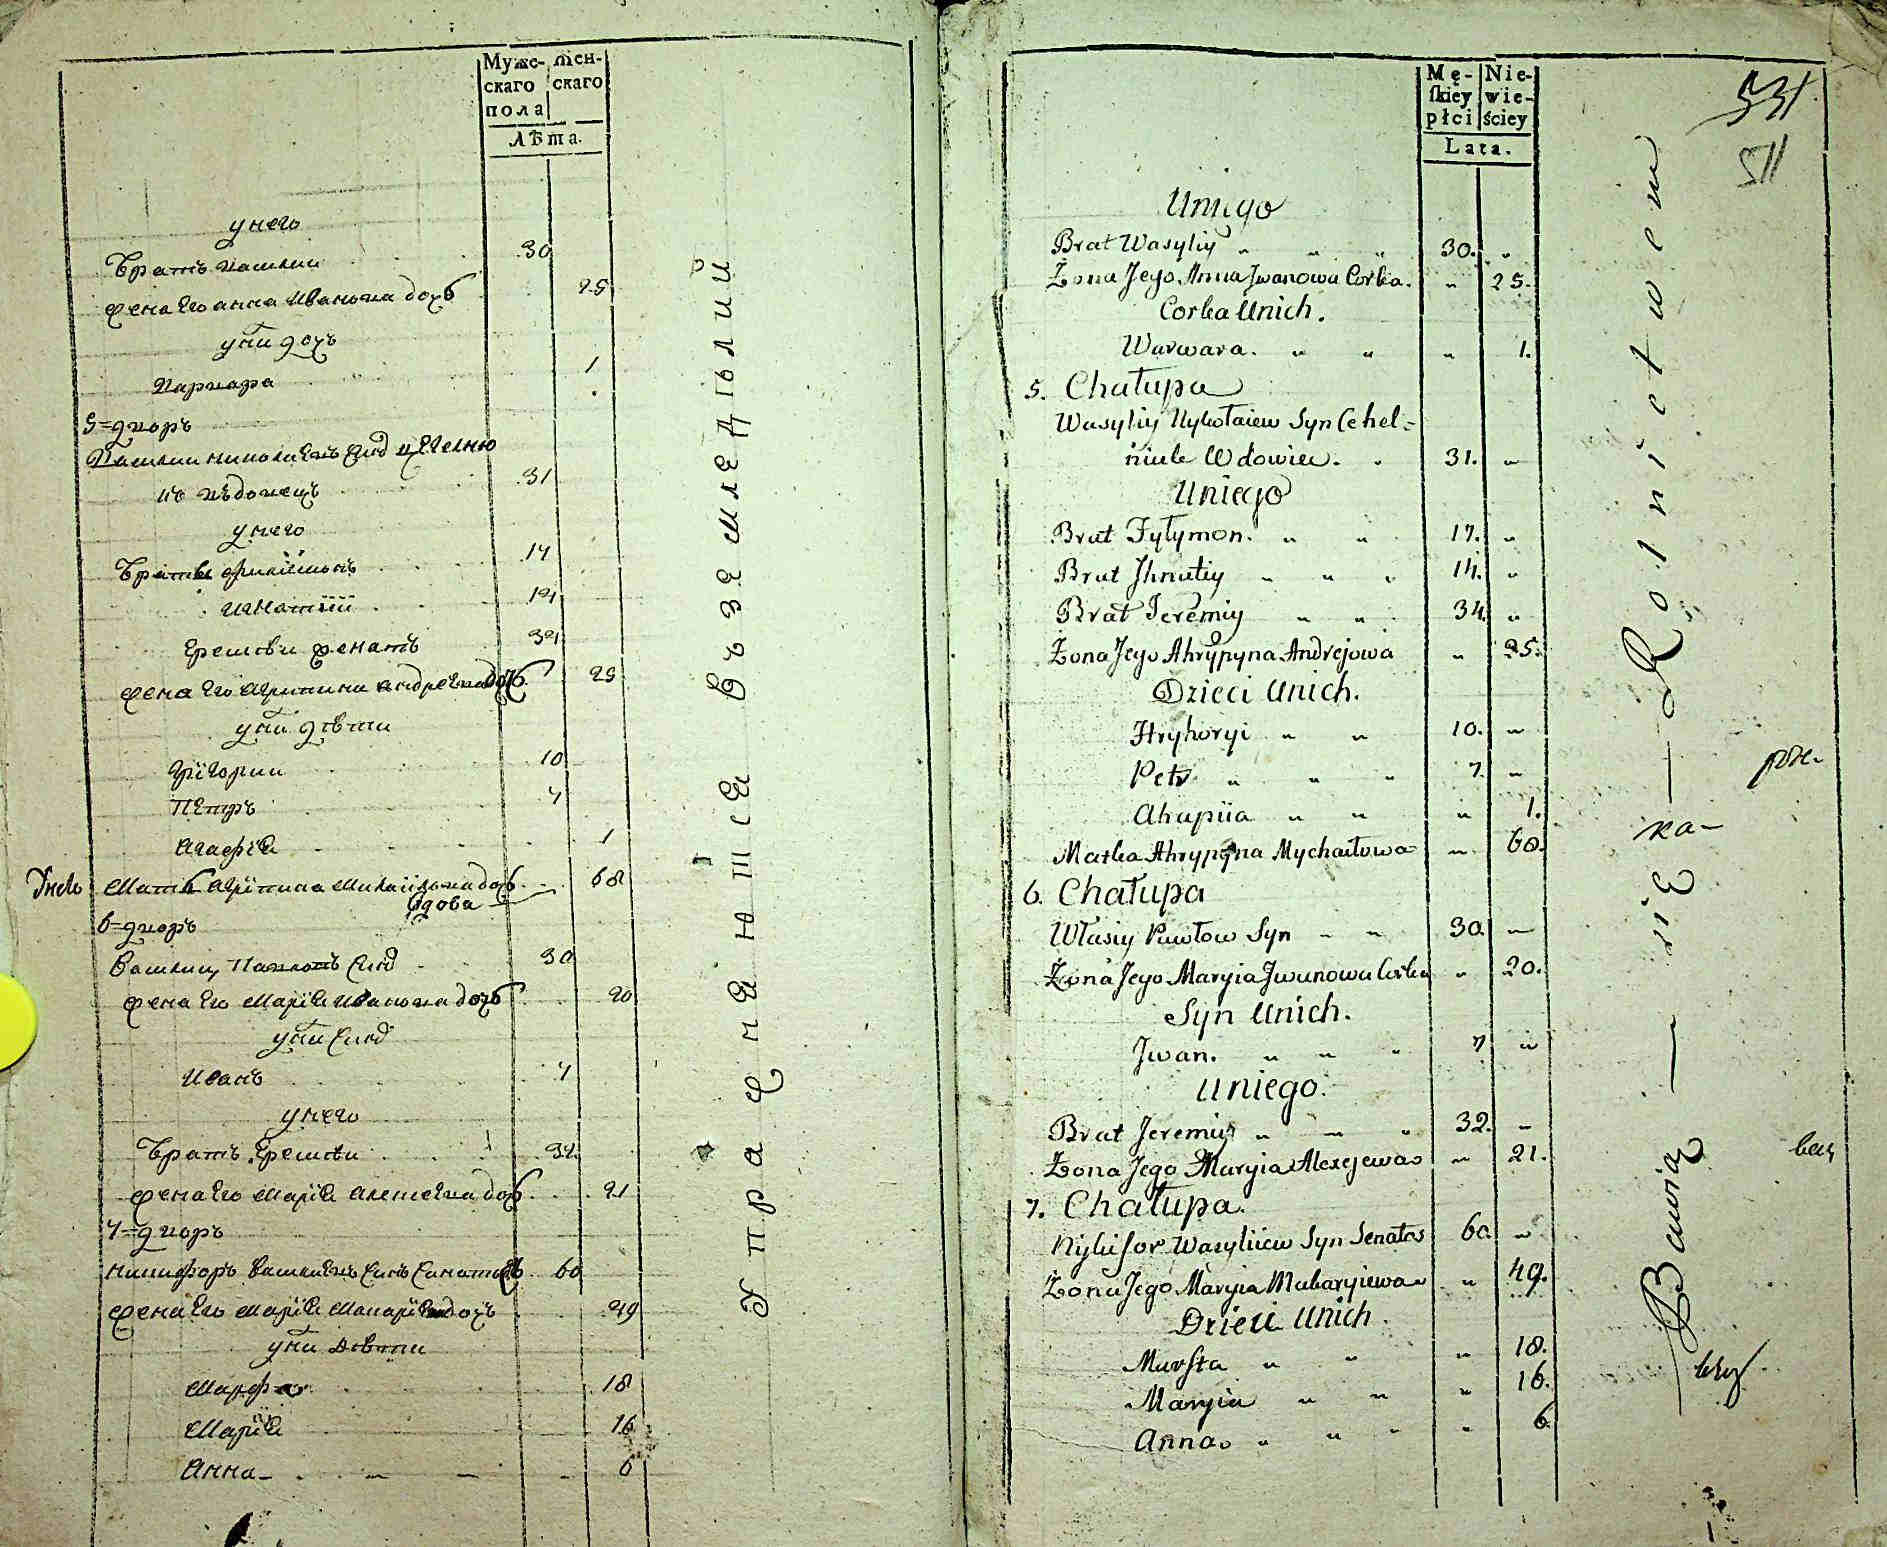 Муже-
скаго
пола
Жен-
скаго
Лѣта.
у него
Братъ Василии 30
Жена Его анна Иванова дочь 25
у ни дочь
Варвара 1
5=дворъ
Василии николаевъ Сынъ
вдовецъ 31
у него
Братья Филимонъ 17
Игнатіи 14
Еремѣи женатъ 34
жена Его Агрипина андреева дочь 25
у ни дѣти
Григории 10
Петръ 7
Агафія 1
У него Мать Агрипина Михаилова дочь 68
вдова
6=дворъ
Павловъ Сынъ 30
жена Его Марія Иванова дочь 20
у ни Сынъ
Иванъ 7
у него
Братъ Еремѣи 32
жена Его Марія алексеева дочь 21
7=дворъ
никифоръ Василиевъ Сынъ 60
жена Его Марія Макаріева дочь 49
у ни дѣти
Марфа 18
Марія 16
Анна 6
Упражняются въ земледѣлии
Mę-
skiey
płci
Nie-
wie-
ściey
Lata.
531
511
Uniego
Brat Wasyliy " " " 30. "
Żona Jego Anna Jwanowa Corka. " 25.
Corka Unich.
Warwara. " " " 1.
5. Chałupa
Wasyliy Nykołaiew Syn Cehel=
niuk Wdowiec. " 31. "
Uniego
Brat Fyłymon. " " 17. "
Brat Jhnatiy " " " 14. "
Brat Jeremiy " " 34. "
Żona Jego Ahrypyna Andrejowa " 25.
Dzieci Unich.
Hryhoryi " " 10. "
Petr " " " 7. "
Ahapiia " " " 1.
Matka Ahrypyna Mychaiłowa " 60.
6. Chałupa
Własiy Pawłow Syn " " 30. "
Żona Jego Maryia Jwanowa Corka " 20.
Syn Unich.
Jwan. " " " 7 "
Uniego.
Brat Jeremiy " " " 32. "
Żona Jego Maryia Alexejewa " 21.
7. Chałupa.
Nykifor Wasyliiew Syn Senatos 60 "
Żona Jego Maryia Makaryiewa " 49.
Dzieci Unich.
Marfta " " " 18.
Maryia " " " 16.
Anna " " " " 6.
Bawią — się — Rolnictwem